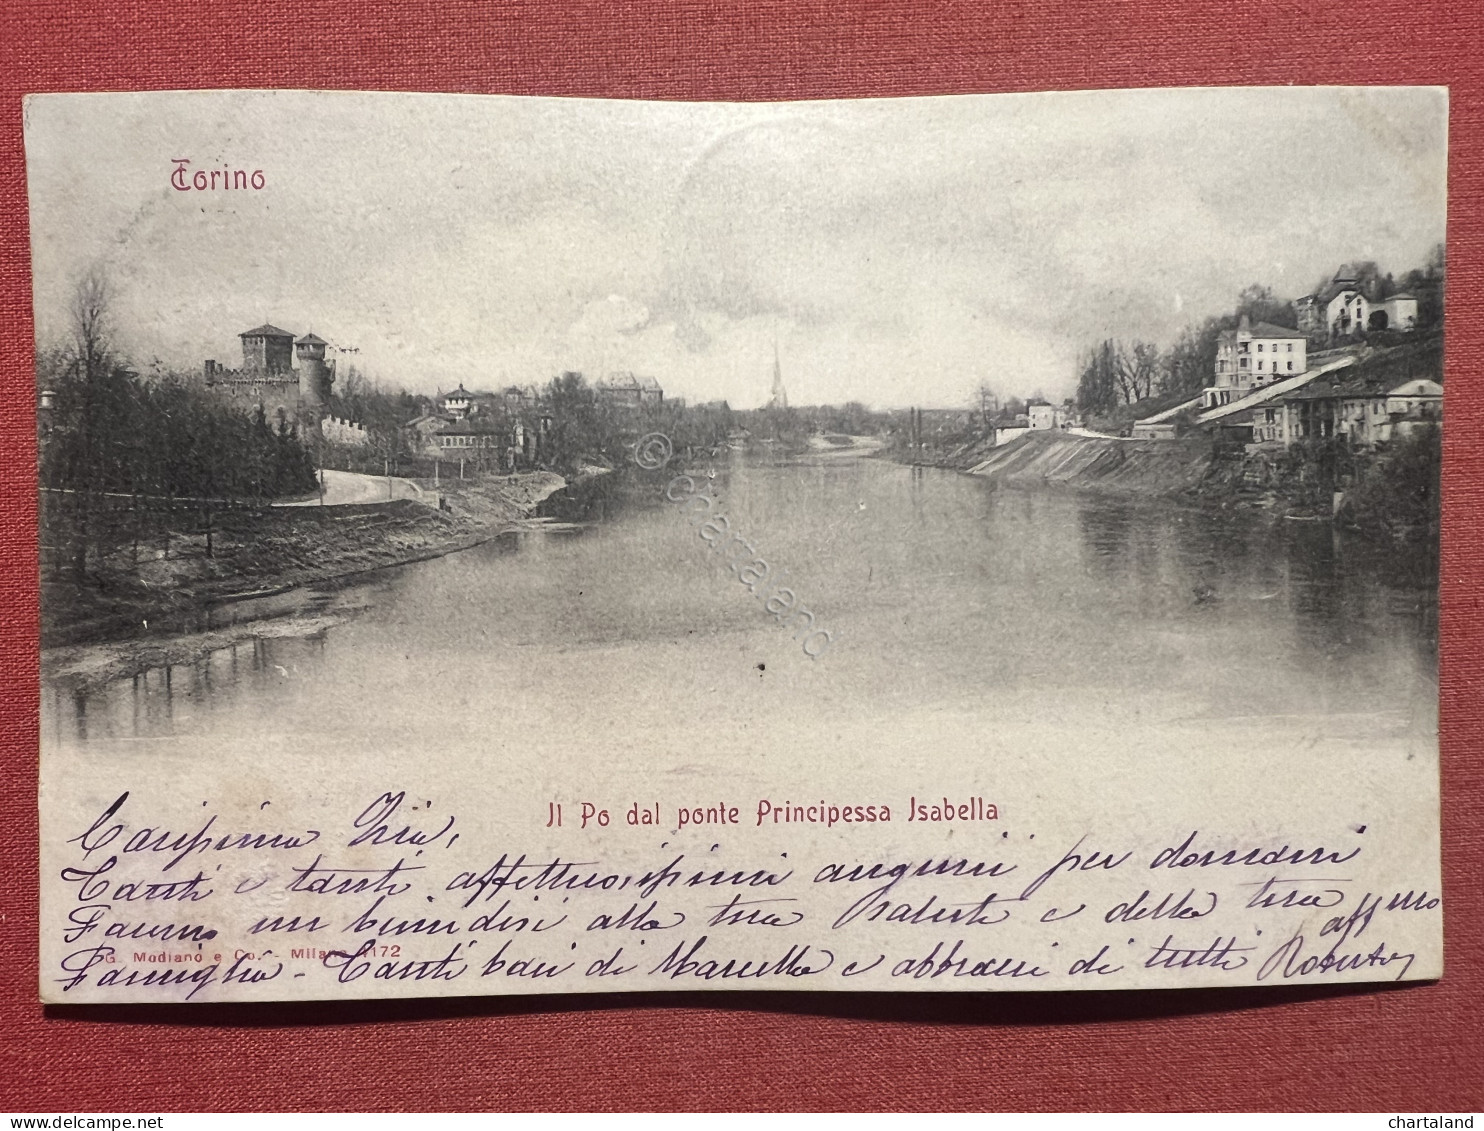 Torino
Il Po dal ponte Principessa Isabella
Carissima Zia,
Tanti e tanti affettuosissimi auguri per domani
Farem un brindisi alla tua salute e della tua
Famiglia - Tanti baci di Marcella e abbracci di tutti aff mo
Roberto
G. Modiano e Co. - Milano 1172
© cartaland
chartaland
delcampe.net